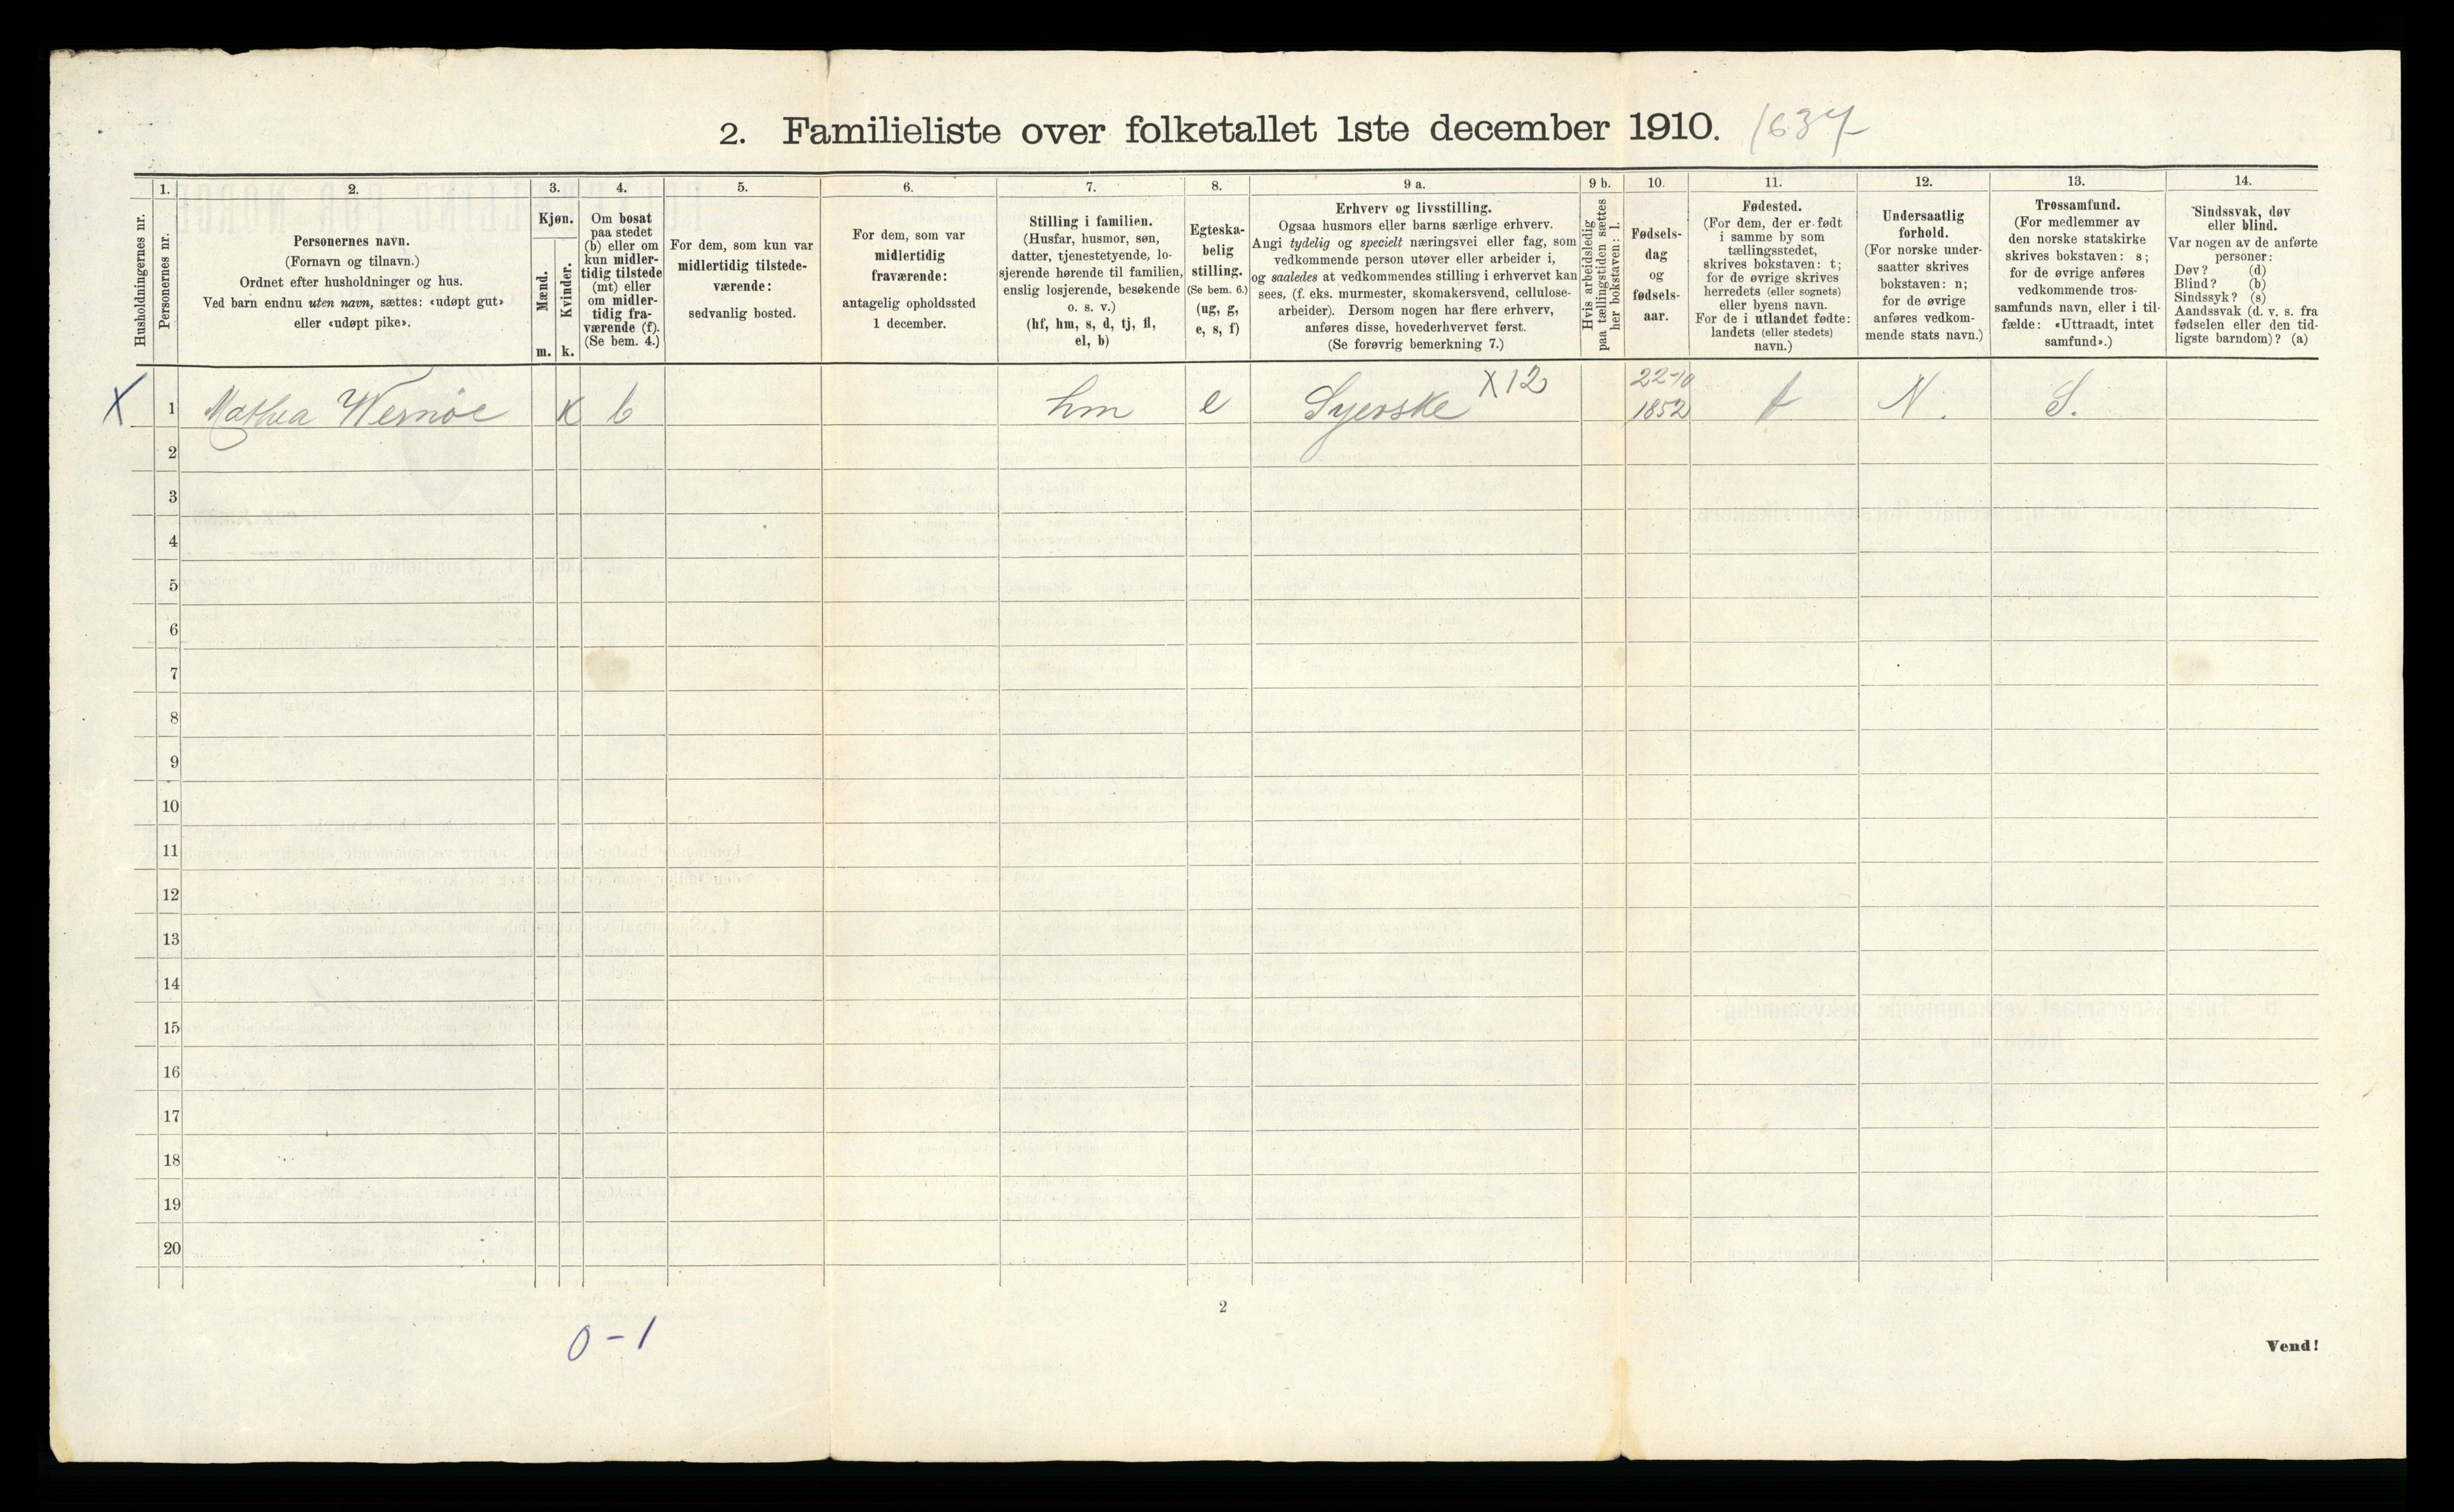 2. Familieliste over folketallet 1ste december 1910. 1637
Husholdningernes nr.
1.
Personernes nr.
2.
Personernes navn.
(Fornavn og tilnavn.)
Ordnet efter husholdninger og hus.
Ved barn endnu uten navn, sættes: «udøpt gut»
eller «udøpt pike».
3.
Kjøn.
Mænd.
Kvinder.
m. k.
4.
Om bosat
paa stedet
(b) eller om
kun midler-
tidig tilstede
(mt) eller
om midler-
tidig fra-
værende (f).
(Se bem. 4.)
5.
For dem, som kun var
midlertidig tilstede-
værende:
sedvanlig bosted.
6.
For dem, som var
midlertidig
fraværende:
antagelig opholdssted
1 december.
7.
Stilling i familien.
(Husfar, husmor, søn,
datter, tjenestetyende, lo-
sjerende hørende til familien,
enslig losjerende, besøkende
o. s. v.)
(hf, hm, s, d, tj, fl,
el, b)
8.
Egteska-
belig
stilling.
(Se bem. 6.)
(ug, g,
e, s, f)
9 a.
Erhverv og livsstilling.
Ogsaa husmors eller barns særlige erhverv.
Angi tydelig og specielt næringsvei eller fag, som
vedkommende person utøver eller arbeider i,
og saaledes at vedkommendes stilling i erhvervet kan
sees, (f. eks. murmester, skomakersvend, cellulose-
arbeider). Dersom nogen har flere erhverv,
anføres disse, hovederhvervet først.
(Se forøvrig bemerkning 7.)
9 b.
Hvis arbeidsledig
paa tællingstiden sættes
her bokstaven: l.
10.
Fødsels-
dag
og
fødsels-
aar.
11.
Fødested.
(For dem, der er født
i samme by som
tællingsstedet,
skrives bokstaven: t;
for de øvrige skrives
herredets (eller sognets)
eller byens navn.
For de i utlandet fødte:
landets (eller stedets)
navn.)
12.
Undersaatlig
forhold.
(For norske under-
saatter skrives
bokstaven: n;
for de øvrige
anføres vedkom-
mende stats navn.)
13.
Trossamfund.
(For medlemmer av
den norske statskirke
skrives bokstaven: s;
for de øvrige anføres
vedkommende tros-
samfunds navn, eller i til-
fælde: «Uttraadt, intet
samfund».)
14.
Sindssvak, døv
eller blind.
Var nogen av de anførte
personer:
Døv? (d)
Blind? (b)
Sindssyk? (s)
Aandssvak (d. v. s. fra
fødselen eller den tid-
ligste barndom)? (a)
X 1 Mathea Wernøe K b hm e Syerske X12 22-10 1852 t N. S.
2
3
4
5
6
7
8
9
10
11
12
13
14
15
16
17
18
19
20
2
0-1
Vend!